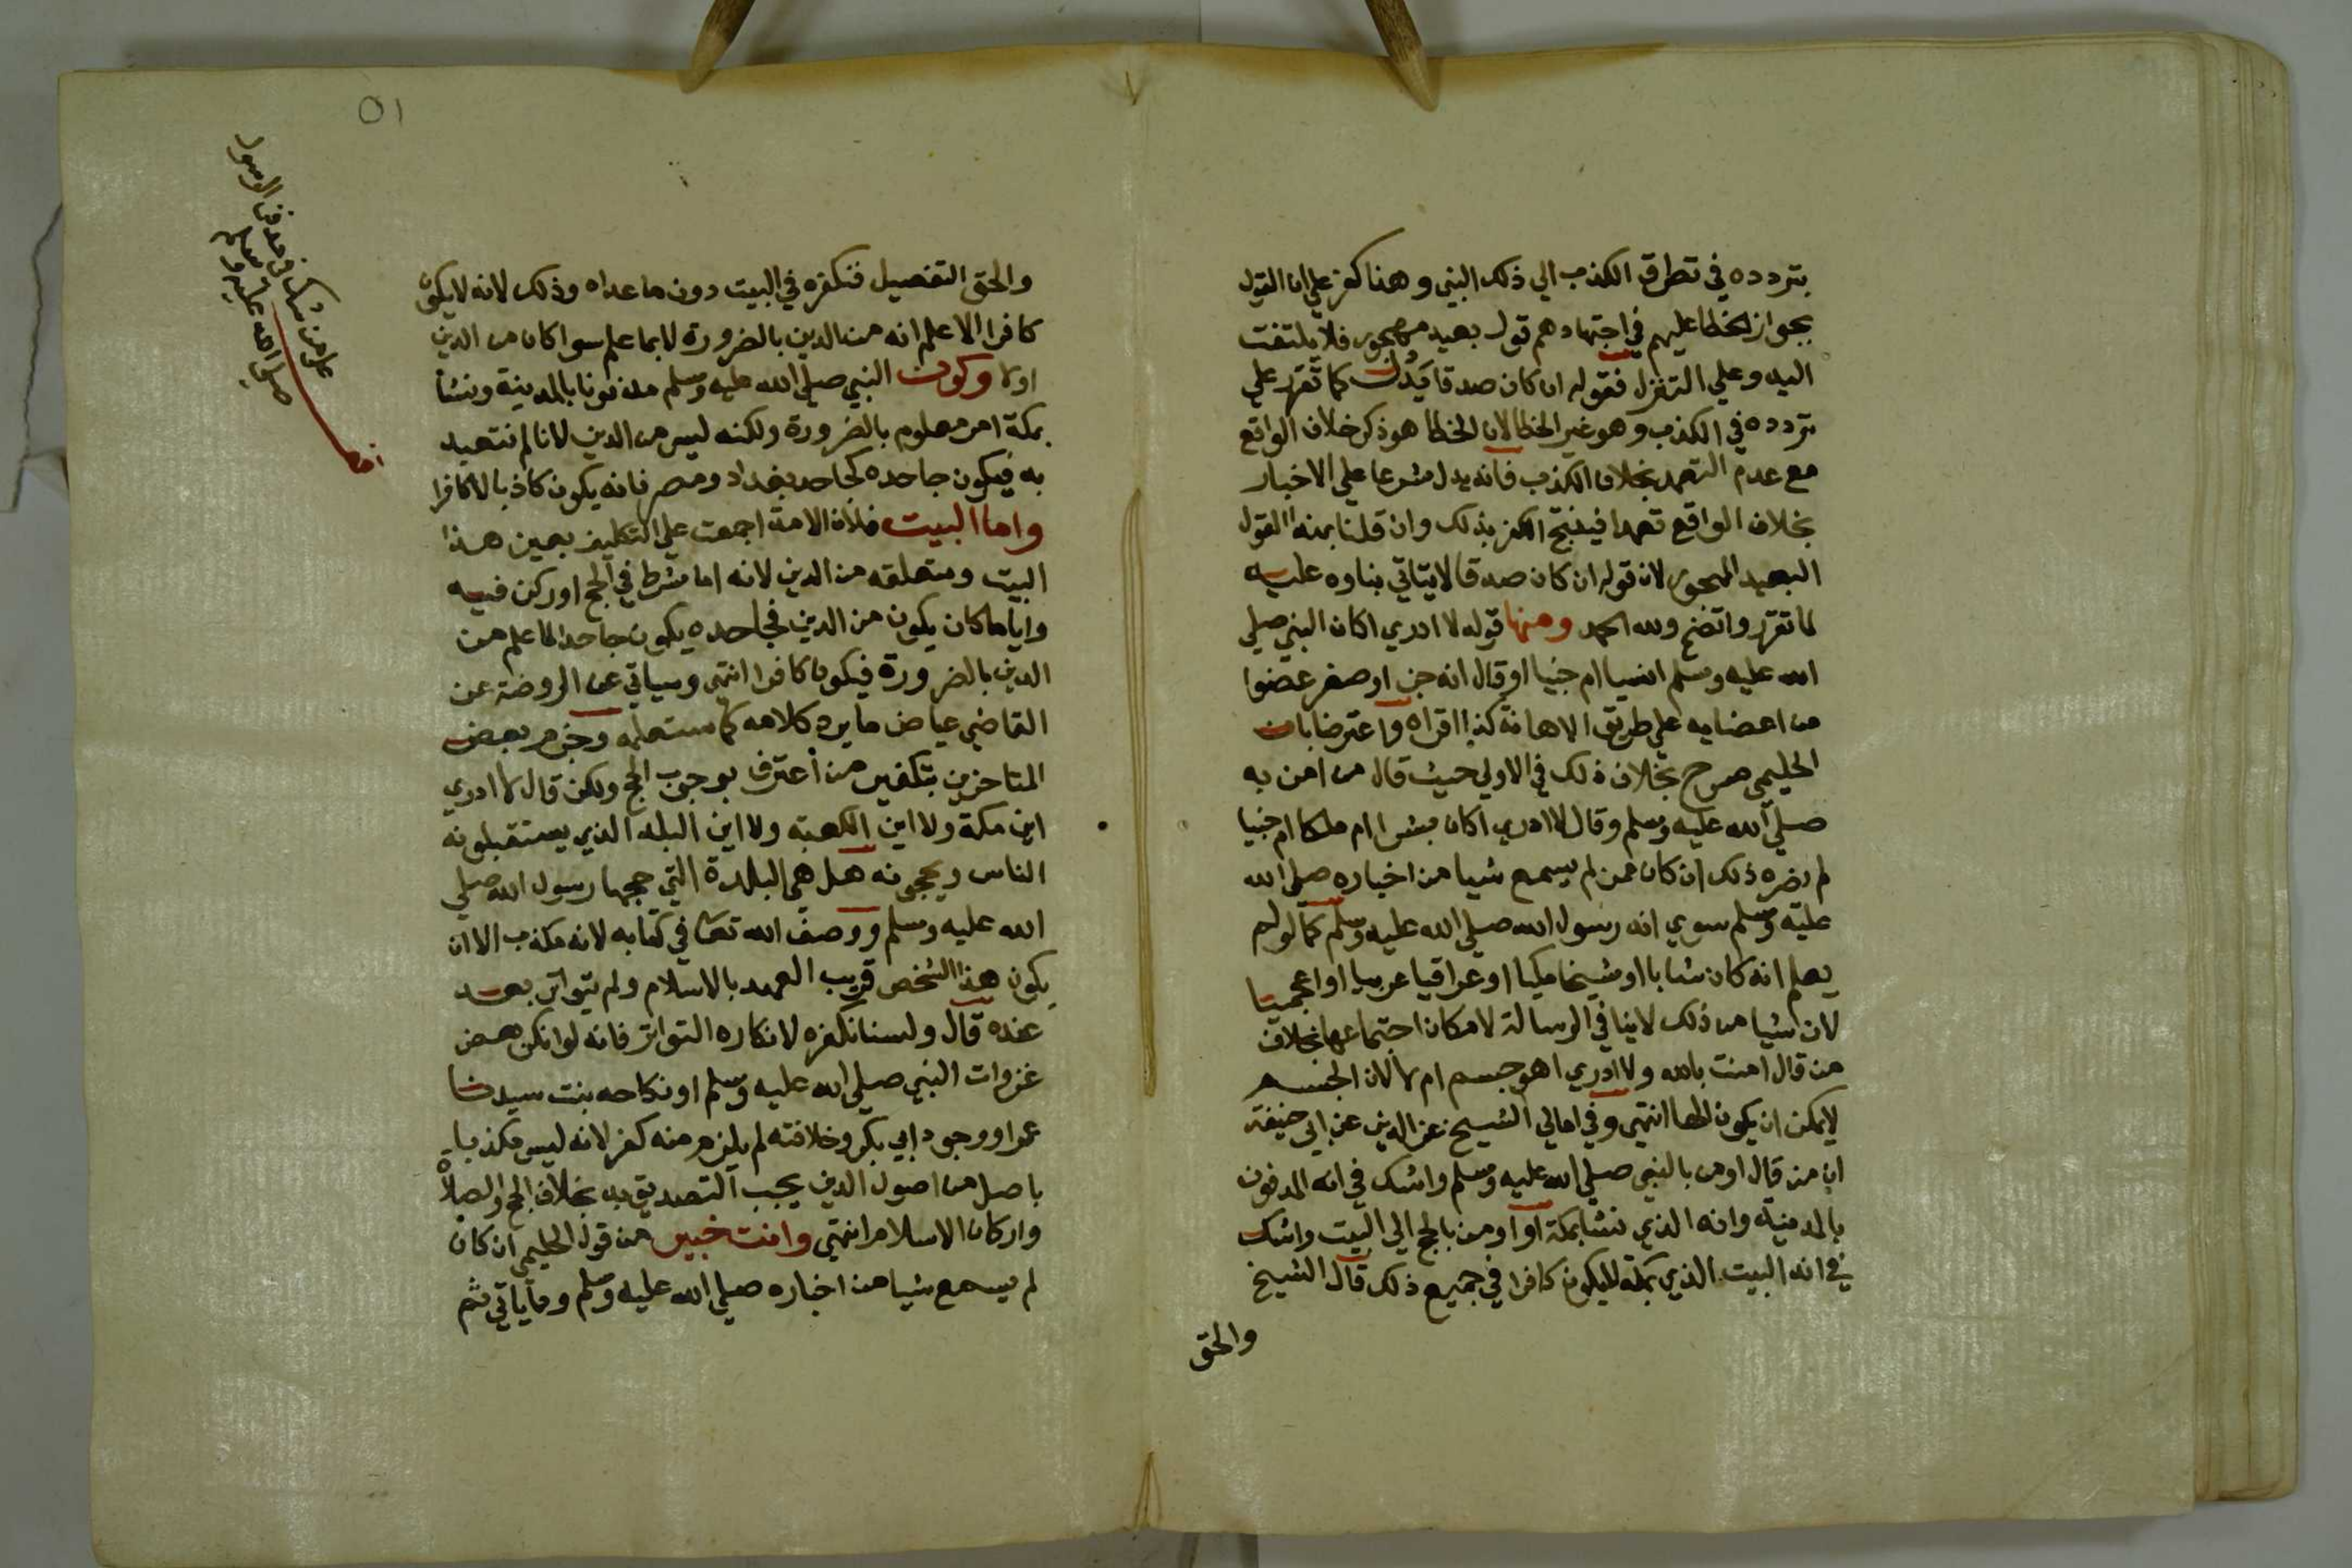 بتردده في تطرق الكذب الي ذلك النبي وهنا كفر علي ان القول
بجواز الخطا عليهم في اجتهادهم قول بعيد مهجور فلا يلتفت
اليه وعلي التنزل فقوله ان كان صدقا يدل كما تقرر علي
تردده في الكذب وهو غير الخطا لان الخطا هو ذكر خلاف الواقع
مع عدم التعمد بخلاف الكذب فانه يدل شرعا علي الاخبار
بخلاف الواقع تعمدا فيفتح الكفر بذلك وان قلنا بهذا القول
البعيد المهجور لان قوله ان كان صدقا لا يتاتي بناوه عليه
لما تقرر واتضح ولله الحمد ومنها قوله لا ادري اكان النبي صلي
الله عليه وسلم انسيا ام جنيا او قال انه جن او صغر عضوا
من اعضايه علي طريق الاهانة كذا اقراه واعترضا بان
الحليمي صرح بخلاف ذلك في الاولي حيث قال من امن به
صلي الله عليه وسلم وقال لا ادري اكان بشرا ام ملكا ام جنيا
لم يضره ذلك ان كان ممن لم يسمع شيا من اخباره صلي الله
عليه وسلم سوي انه رسول الله صلي الله عليه وسلم كما لو لم
يعلم انه كان شابا او شيخا مكيا او عراقيا عربيا او اعجميا
لان شيا من ذلك لا ينافي الرسالة لامكان اجتماعها بخلاف
من قال امنت بالله ولا ادري اهو جسم ام لا لان الجسم
لا يمكن ان يكون الها انتهي وفي امالي الشيخ عز الدين عن ابي حنيفة
ان من قال اومن بالنبي صلي الله عليه وسلم واشك في انه المدفون
بالمدينة وانه الذي نشا بمكة او اومن بالحج الي البيت واشك
في انه البيت الذي بمكة لا يكون كافرا في جميع ذلك قال الشيخ
والحق
٥١
والحق التفصيل فنكفره في البيت دون ما عداه وذلك لانه لا يكون
كافرا الا علم انه من الدين بالضرورة لا بما علم سوا كان من الدين
او لا وكون النبي صلي الله عليه وسلم مدفونا بالمدينة ونشا
بمكة امر معلوم بالضرورة ولكنه ليس من الدين لانا لم نتعبد
به فيكون جاحده كجاحد بغداد ومصر فانه يكون كاذبا لا كافرا
واما البيت فلان الامة اجمعت علي التكليف بعين هذا
البيت ومتعلقه من الدين لانه اما شرط في الحج او ركن فيه
وايا ما كان يكون من الدين فجاحده يكون جاحدا لما علم من
الدين بالضرورة فيكون كافرا انتهي وسياتي عن الروضة عن
القاضي عياض ما يرد كلامه كما ستعلمه وجزم بعض
المتاخرين بتكفير من اعترف بوجوب الحج ولكن قال لا ادري
اين مكة ولا اين الكعبة ولا اين البلد الذي يستقبلونه
الناس ويحجونه هل هي البلدة التي حجها رسول الله صلي
الله عليه وسلم ووصف الله تعالى في كتابه لانه مكذب الا ان
يكون هذا الشخص قريب العهد بالاسلام ولم يتواتر بعد
عنده قال ولسنا نكفره لانكاره التواتر فانه لو انكر بعض
غزوات النبي صلي الله عليه وسلم او نكاحه بنت سيدنا
عمر او وجود ابي بكر وخلافته لم يلزم منه كفر لانه ليس مكذبا
باصل من اصول الدين يجب التصديق به بخلاف الحج والصلاة
واركان الاسلام انتهي وانت خبير من قول الحليمي ان كان
لم يسمع شيا من اخباره صلي الله عليه وسلم وما ياتي ثم
من شك في مدفن الرسول
صلى الله عليه وسلم